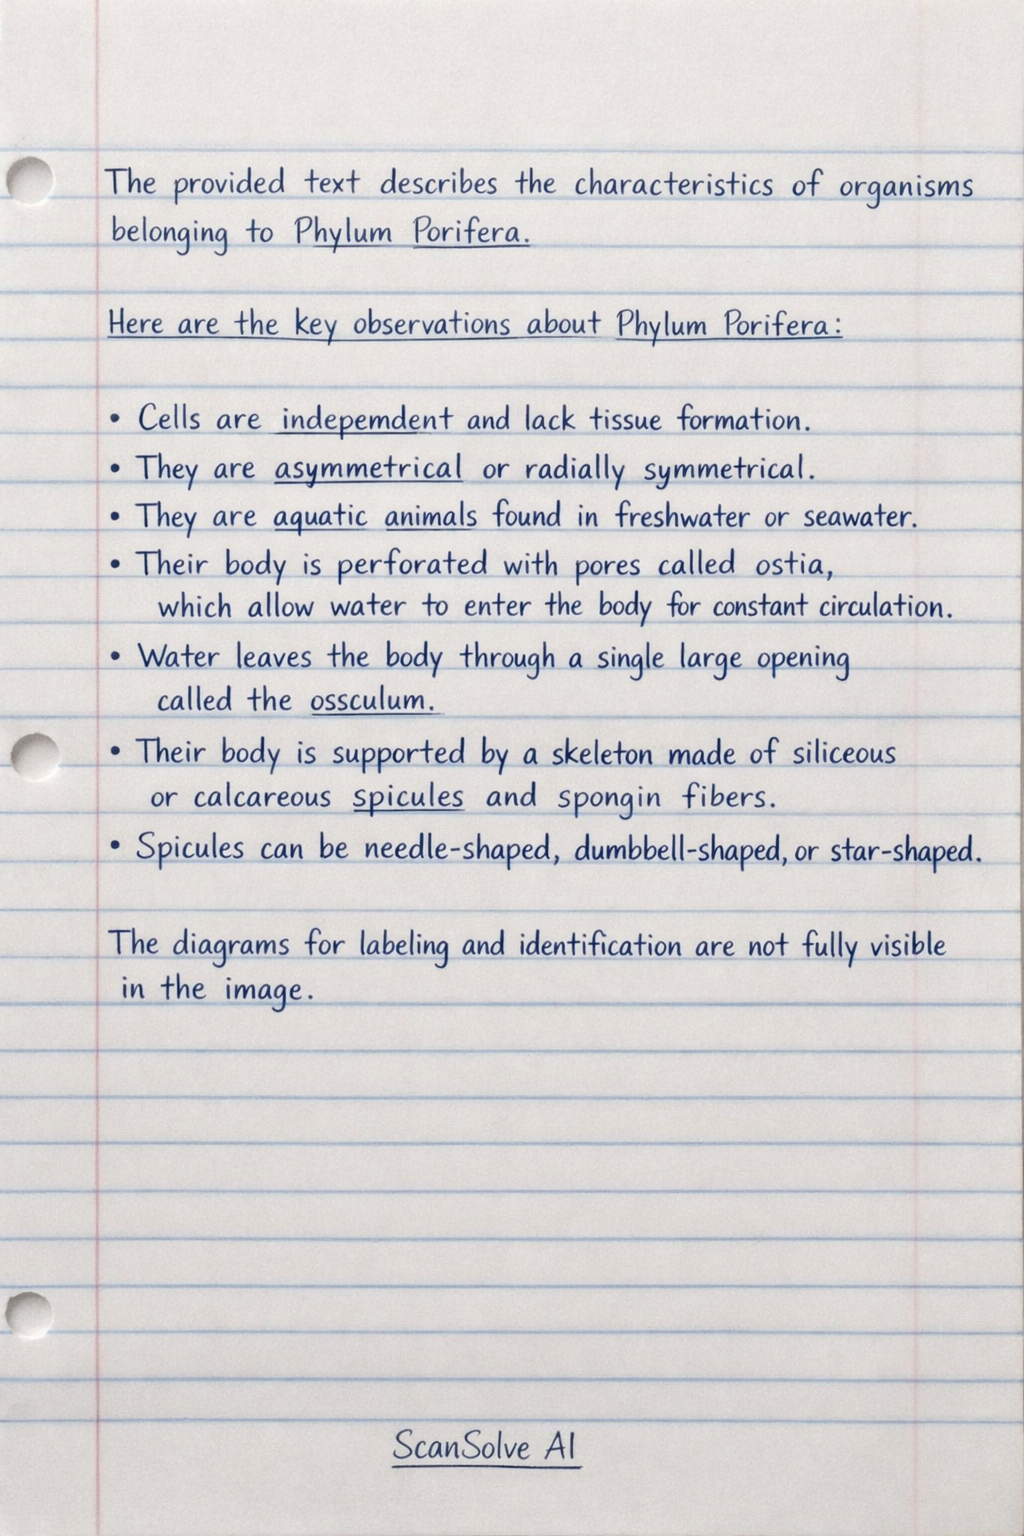 The provided text describes the characteristics of organisms
belonging to Phylum Porifera.
Here are the key observations about Phylum Porifera:
• Cells are indepemdent and lack tissue formation.
• They are asymmetrical or radially symmetrical.
• They are aquatic animals found in freshwater or seawater.
• Their body is perforated with pores called ostia,
which allow water to enter the body for constant circulation.
• Water leaves the body through a single large opening
called the ossculum.
• Their body is supported by a skeleton made of siliceous
or calcareous spicules and spongin fibers.
• Spicules can be needle-shaped, dumbbell-shaped, or star-shaped.
The diagrams for labeling and identification are not fully visible
in the image.
ScanSolve AI